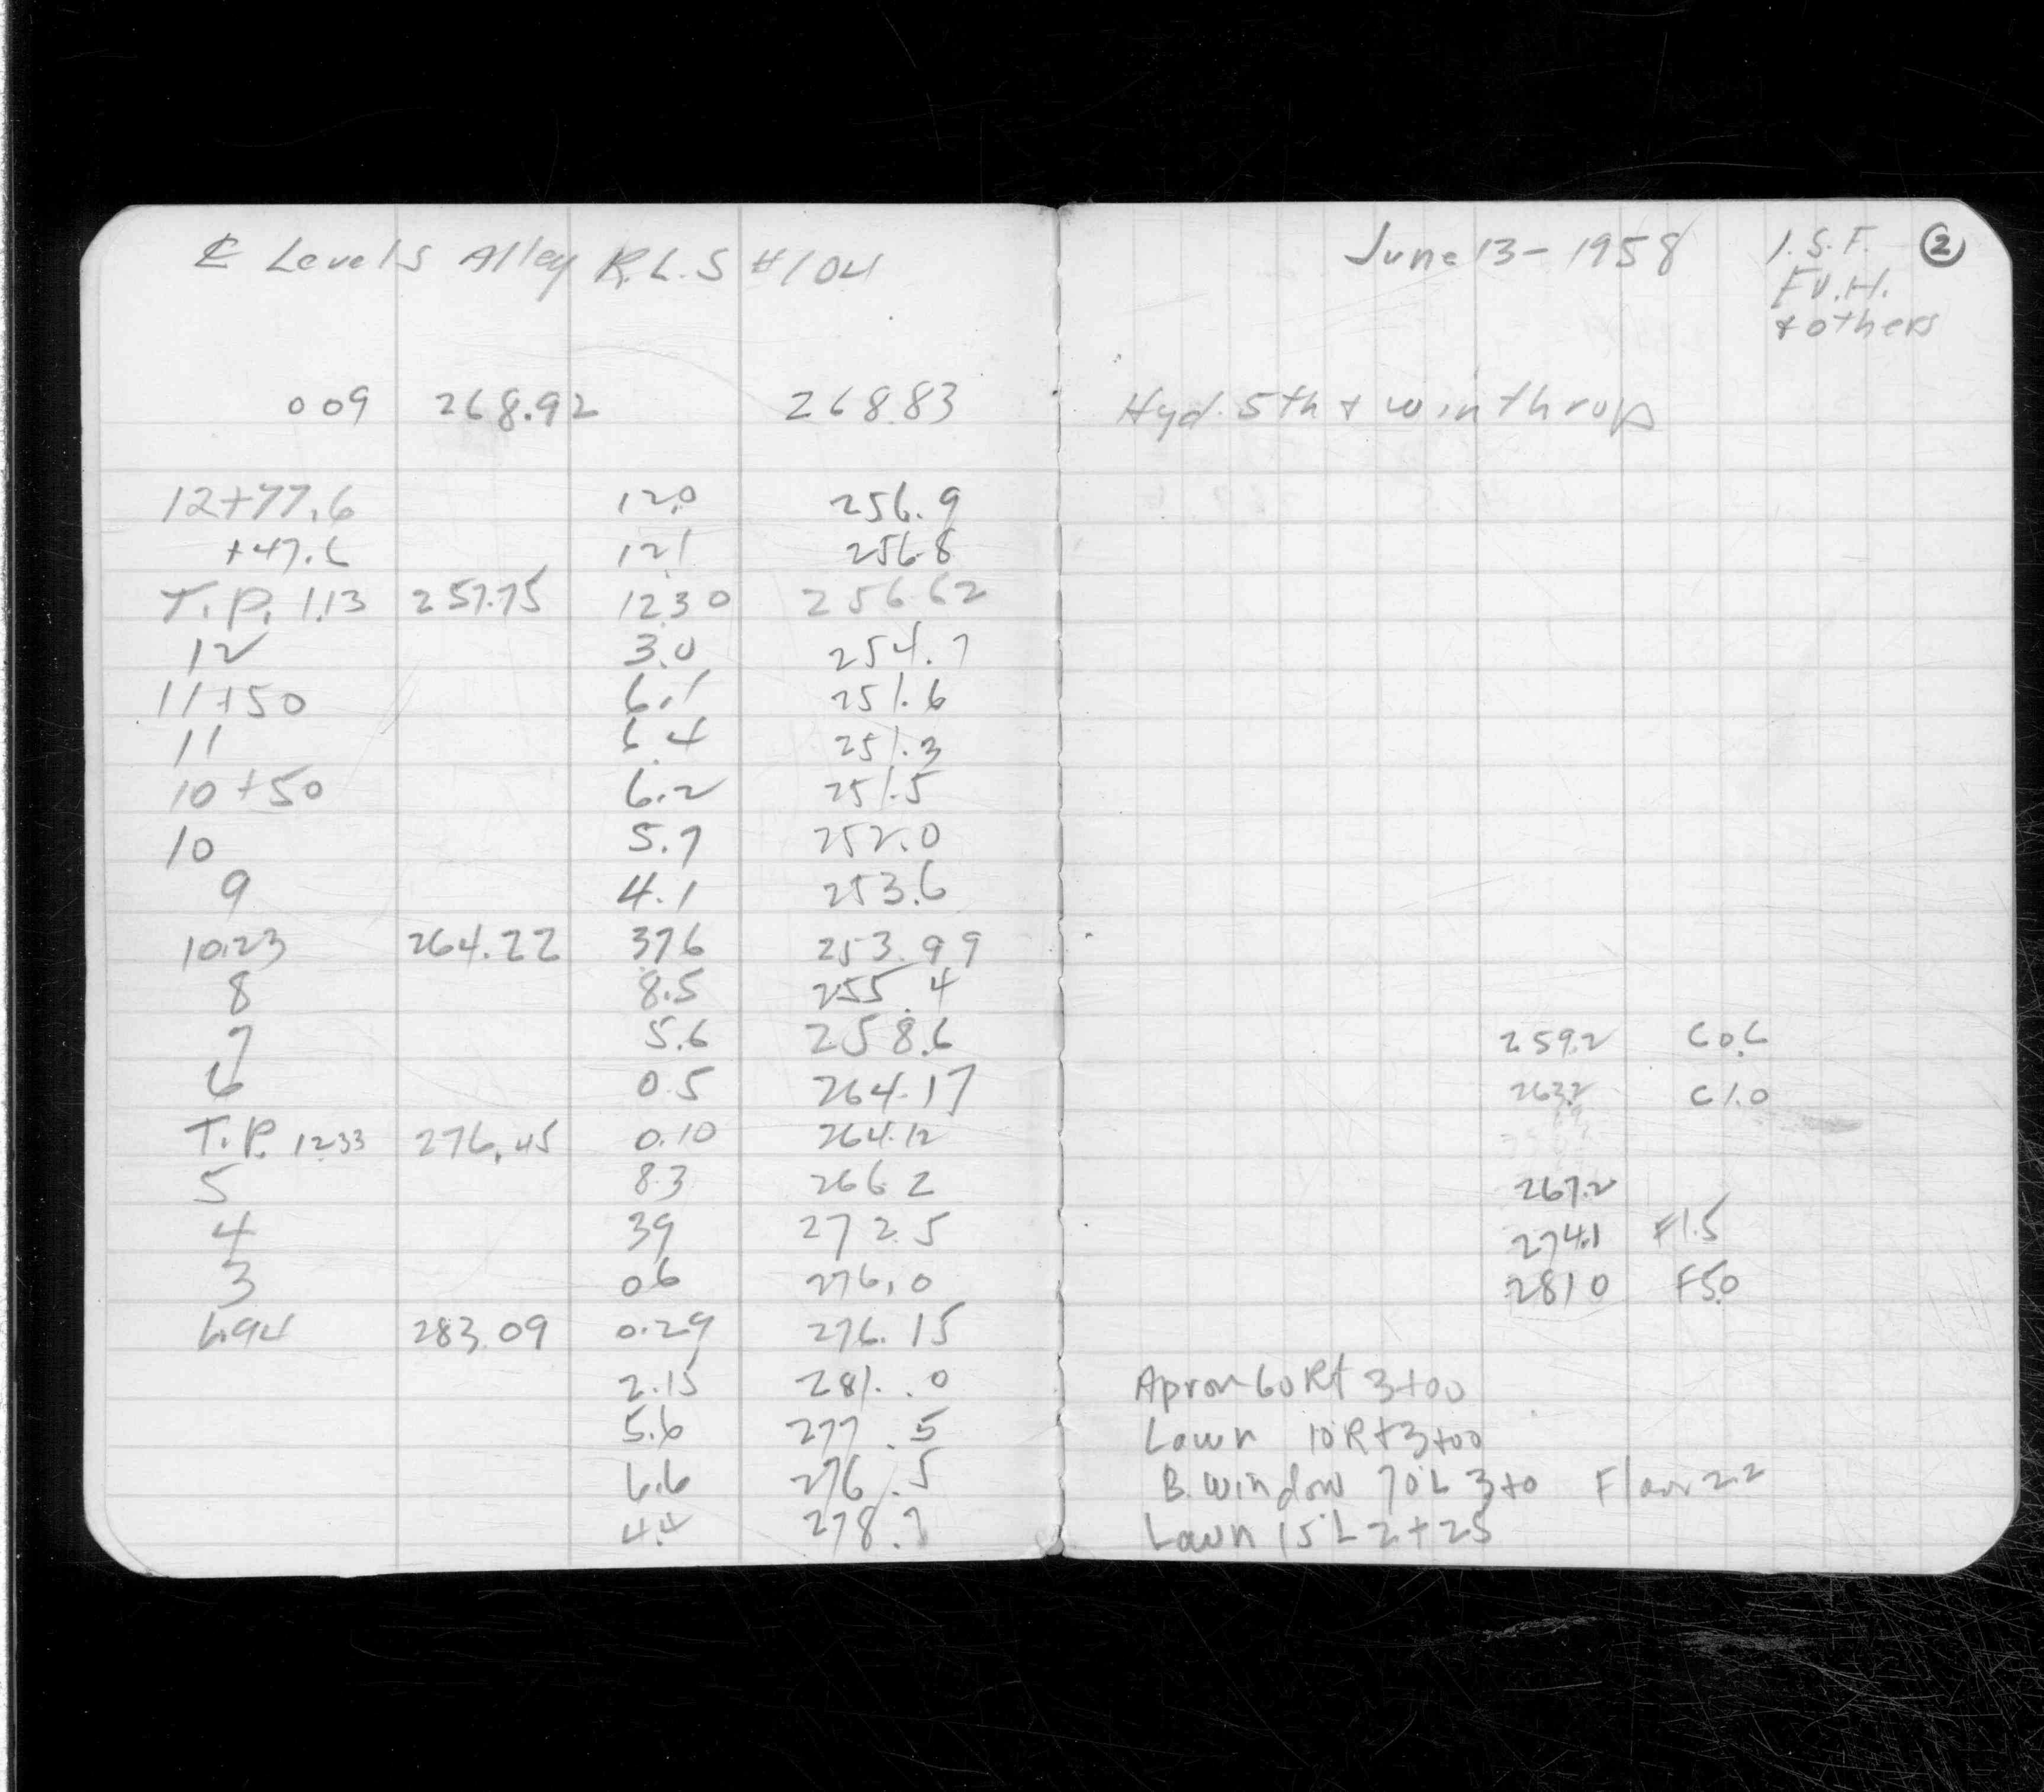 ℄ Levels Alley R.L.S #104
009 268.92 268.83
12+77.6 12.0 256.9
+47.6 12.1 256.8
T.P. 1.13 257.75 12.30 256.62
12 3.0 254.7
11+50 6.1 251.6
11 6.4 251.3
10+50 6.2 251.5
10 5.7 252.0
9 4.1 253.6
10.23 264.22 3.76 253.99
8 8.5 255.4
7 5.6 258.6
6 0.5 264.17
T.P. 12.33 276.45 0.10 264.12
5 8.3 266.2
4 39 272.5
3 06 276.0
6.94 283.09 0.29 276.15
2.15 281.0
5.6 277.5
6.6 276.5
4.4 278.7
June 13-1958 I.S.F. 2
F.V.H.
& others
Hyd. 5th & Winthrop
259.2 C0.6
263.2 C1.0
267.2
274.1 F1.5
281.0 F5.0
Apron 60 Rt 3+00
Lawn 10 Rt 3+00
B. Window 70 L 3+0 Floor 2.2
Lawn 15' L 2+25